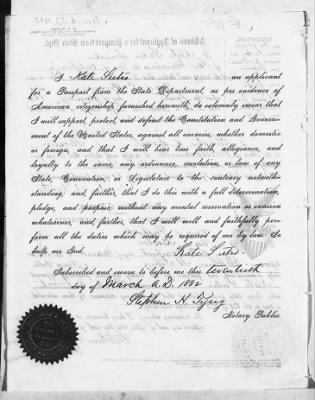 I Kate Sutro an applicant
for a Passport from the State Department, as per evidence of
American citizenship furnished herewith, do solemnly swear that
I will support, protect, and defend the Constitution and Govern-
ment of the United States, against all enemies, whether domestic
or foreign, and that I will bear true faith, allegiance, and
loyalty to the same, any ordinance, resolution, or law of any
State, Convention, or Legislature to the contrary notwith-
standing, and, further, that I do this with a full determination,
pledge, and purpose, without any mental reservation or evasion
whatsoever, and, further, that I will well and faithfully per-
form all the duties which may be required of me by law. So
help me God.
Kate Sutro
Subscribed and sworn to before me this twentieth
day of March A.D. 1882
Stephen H. Tyng
Notary Public.